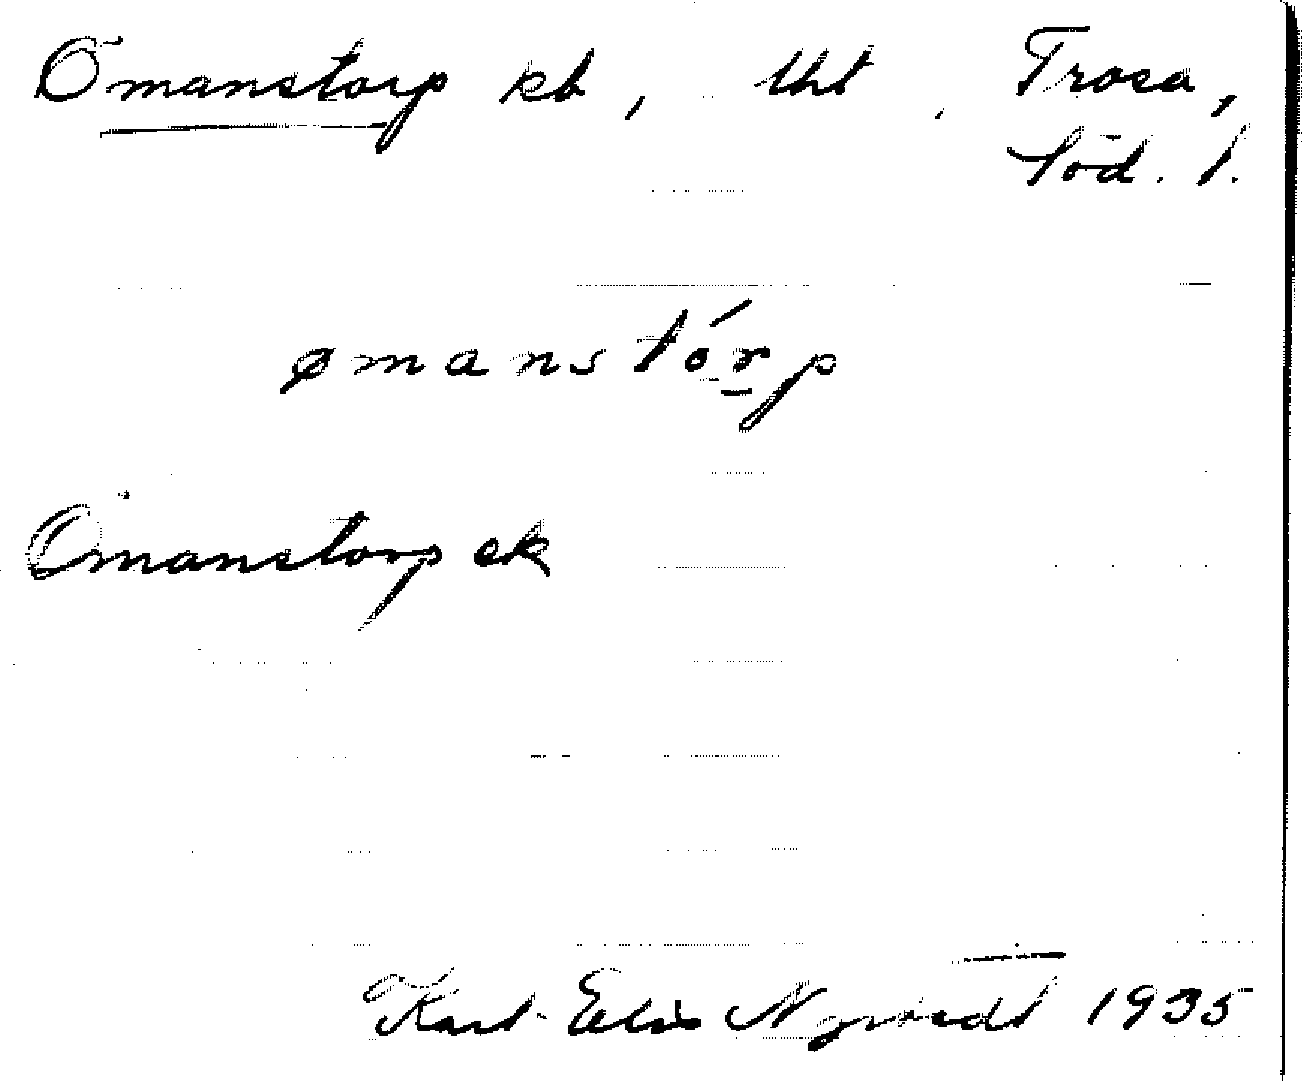 Ömanstorp kb, tht, Trosa,
Söd. l.
ømanstórp
Ömanstorp ek
Karl-Elis 1935